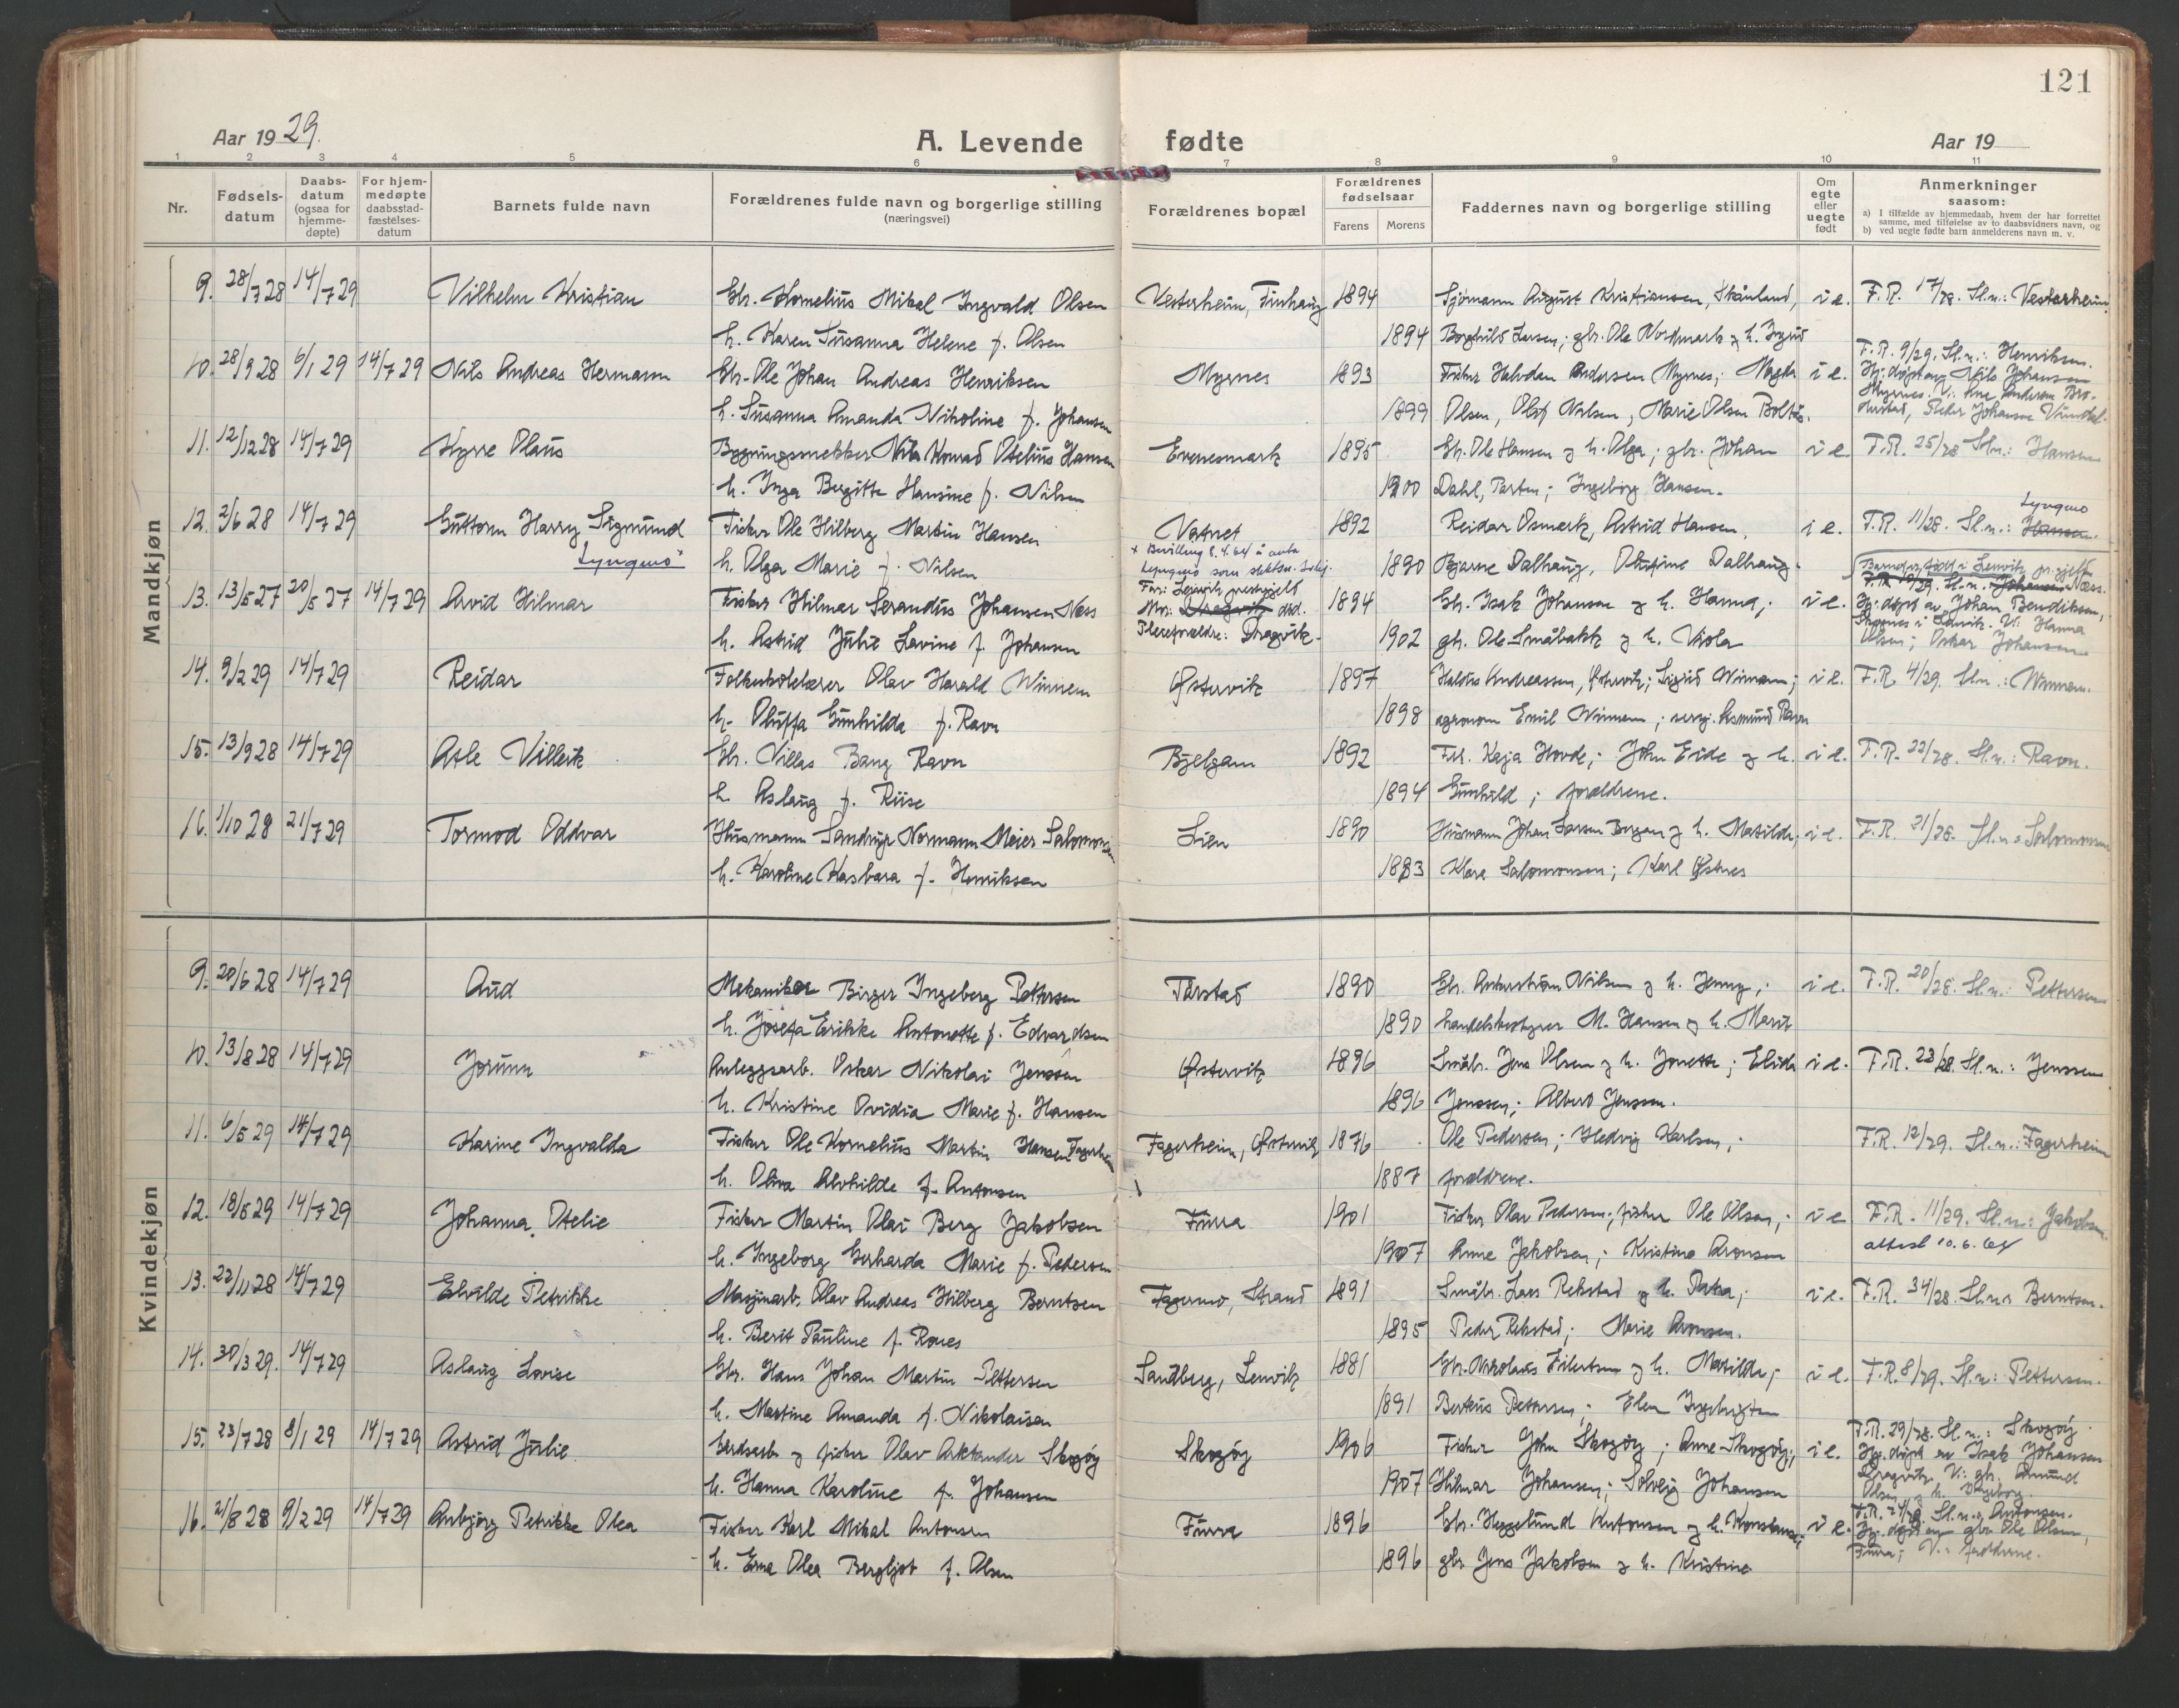 121
Aar 1929.
A. Levende fødte
Aar 19
1 2 3 4 5 6 7 8 9 10 11
Nr.
Fødsels-datum
Daabs-datum (ogsaa for hjemme-døpte)
For hjem-medøpte daabsstad-fæstelses-datum
Barnets fulde navn
Forældrenes fulde navn og borgerlige stilling (næringsvei)
Forældrenes bopæl
Forældrenes fødselsaar
Farens
Morens
Faddernes navn og borgerlige stilling
Om egte eller uegte født
Anmerkninger saasom:
a) I tilfælde av hjemmedaab, hvem der har forrettet samme, med tilføielse av to daabsvidners navn, og
b) ved uegte fødte barn anmelderens navn m. v.
Mandkjøn
9. 28/7 28 14/7 29 Vilhelm Kristian Gbr. Kornelius Mikal Ingvald Olsen Vesterheim, 1894 Sjømann August Kristiansen, Skånland, i e. F.R. 17/28. Sl.n.: Vesterheim
h. Karen Susanna Helene f. Olsen 1894 Borghild Larsen; gbr. Ole Nordmark og h. Ingrid
10. 28/9 28 6/1 29 14/7 29 Nils Andreas Hermann Gbr. Ole Johan Andreas Henriksen Myrnes 1893 Fisker Halvdan Andersen Myrnes; Magda i e. F.R. 9/29. Sl.n.: Henriksen.
Hj. døpt av Nils Johansen
h. Susanna Amanda Nikoline f. Johansen 1899 Olsen, Olaf Nilsen, Marie Olsen Boltås.
Myrnes. V.: Ane Andersen
Peder Johansen
11. 12/12 28 14/7 29 Kyrre Olaus Bygningssnekker Nils Konrad Otelius Hansen Evenesmark 1895 Gbr. Ole Hansen og h. Olga; gbr. Johan i e. F.R. 25/28 Sl.n.: Hansen
h. Inga Bergitte Hansine f. Nilsen 1900 Dahl, Ingeborg Hansen.
12. 2/6 28 14/7 29 Guttorm Harry Sigmund Fisker Ole Hilberg Martin Hansen Vatnet 1892 Reidar Osmark, Astrid Hansen, i e. F.R. 11/28. Sl.n.: Hansen. Lyngmo
Lyngmo x h. Olga Marie f. Nilsen x Bevilling 8.4.64 å anta Lyngmo som slektsn. 1890 Bjarne Dalhaug, Dalhaug.
13. 13/5 27 20/5 27 14/7 29 Arvid Hilmar Fisker Hilmar Serandus Johansen Næss Far: Lenvik prestegjeld 1894 Gbr. Isak Johansen og h. Hanna; i e. Barnet er født i Lenvik pr.gjeld
Mor: Dragvik død.
F.R. 19/29. Sl.n. Johansen Næss.
Pleieforældre: Dragvik.
Hj. døpt av Johan Bendiksen,
h. Astrid Julie Lavine f. Johansen 1902 gbr. Ole Småbakk og h. Viola
i Lenvik. V.: Hanna
Olsen; Oskar Johansen
14. 9/2 29 14/7 29 Reidar Folkeskolelærer Olav Harald Winnem Østervik 1897 Andreassen, Østervik; Sigrid Winnem; i e. F.R. 4/29. Sl.n.: Winnem.
h. Gunhilda f. Ravn 1898 agronom Emil Winnem; Asmund Ravn
15. 13/9 28 14/7 29 Atle Villeik Gbr. Villas Bang Ravn Bjelgam 1892 Frk. Kaja Hovde; John Eide og h. i e. F.R. 22/28. Sl.n.: Ravn.
h. Aslaug f. Riise 1894 Gunhild; forældrene.
16. 1/10 28 21/7 29 Tormod Oddvar Husmann Sandrup Normann Meier Salomonsen Lien 1890 Husmann Johan Larsen Bergan og h. Matilde; i e. F.R. 21/28. Sl.n.: Salomonsen
h. Karoline Kasbara f. Henriksen 1893 Klara Salomonsen; Karl Østnes
Kvindekjøn
9. 20/6 28 14/7 29 Aud Mekaniker Birger Ingeberg Pettersen Tårstad 1890 Gbr. Ankerstrøm Nilsen og h. Jenny; i e. F.R. 20/28. Sl.n.: Pettersen
h. Josefa Erikke Antonette f. Edvardsen 1890 handelsbestyrer M. Hansen og h. Marit
10. 13/8 28 14/7 29 Jorunn Anleggsarb. Oskar Nikolai Jenssen Østervik 1896 Småbr. Jens Olsen og h. Jonette; Elida i e. F.R. 23/28. Sl.n.: Jenssen
h. Kristine Ovidia Marie f. Hansen 1896 Jenssen; Albert Jenssen.
11. 6/5 29 14/7 29 Karine Ingvalda Fisker Ole Kornelius Martin Hansen Fagerheim Fagerheim, Østervik 1876 Ole Pedersen; Hedvig Karlsen; F.R. 12/29. Sl.n.: Fagerheim
h. Oliva Alvhilde f. Antonsen 1887 forældrene.
12. 18/5 29 14/7 29 Johanna Otelie Fisker Martin Olai Berg Jakobsen Furra 1901 Fisker Olav Pedersen; fisker Ole Olsen; i e F.R. 11/29. Sl.n.: Jakobsen.
h. Ingeborg Gerharda Marie f. Pedersen 1907 Anne Jakobsen; Kristine Aronsen attest 10.6.64
13. 22/11 28 14/7 29 Elvilde Petrikke Masjinarb. Olav Andreas Hilberg Berntsen Fagermo, Strand 1891 Småbr. Lars Rekstad og h. i e. F.R. 34/28. Sl.n.: Berntsen.
h. Berit Pauline f. Roues 1895 Peder Rekstad; Marie Aronsen.
14. 30/3 29. 14/7 29 Aslaug Lovise Gbr. Hans Johan Martin Pettersen Sandberg, Lenvik 1881 Gbr. Nikolaus Eilertsen og h. Matilde; i e. F.R. 8/29. Sl.n.: Pettersen.
h. Martine Amanda f. Nikolaisen 1891 Berteus Pettersen; Elen Ingebrigtsen
15. 23/7 28 8/1 29 14/7 29 Astrid Julie og fisker Olav Arktander Skogøy Skogøy 1906 Fisker John Skogøy; Anne Skogøy; i e. F.R. 29/28. Sl.n.: Skogøy
Hj. døpt av Isak Johansen
h. Hanna Karoline f. Johansen 1907 Hilmar Johansen; Solveig Johansen
Dragvik. V.: gbr. Amund
Olsen og h. Ingeborg.
16. 21/8 28 9/2 29 14/7 29 Anbjørg Petrikke Olea Fisker Karl Mikal Antonsen Furra 1896 Gbr. Heggelund Antonsen og h. Konstanse; i e. F.R. 24/28. Sl.n.: Antonsen.
Hj. døpt av gbr. Ole Olsen,
h. Erna Olea Bergljot f. Olsen 1896 gbr. Jens Jakobsen og h. Kristine
Furra; V.: forældrene.